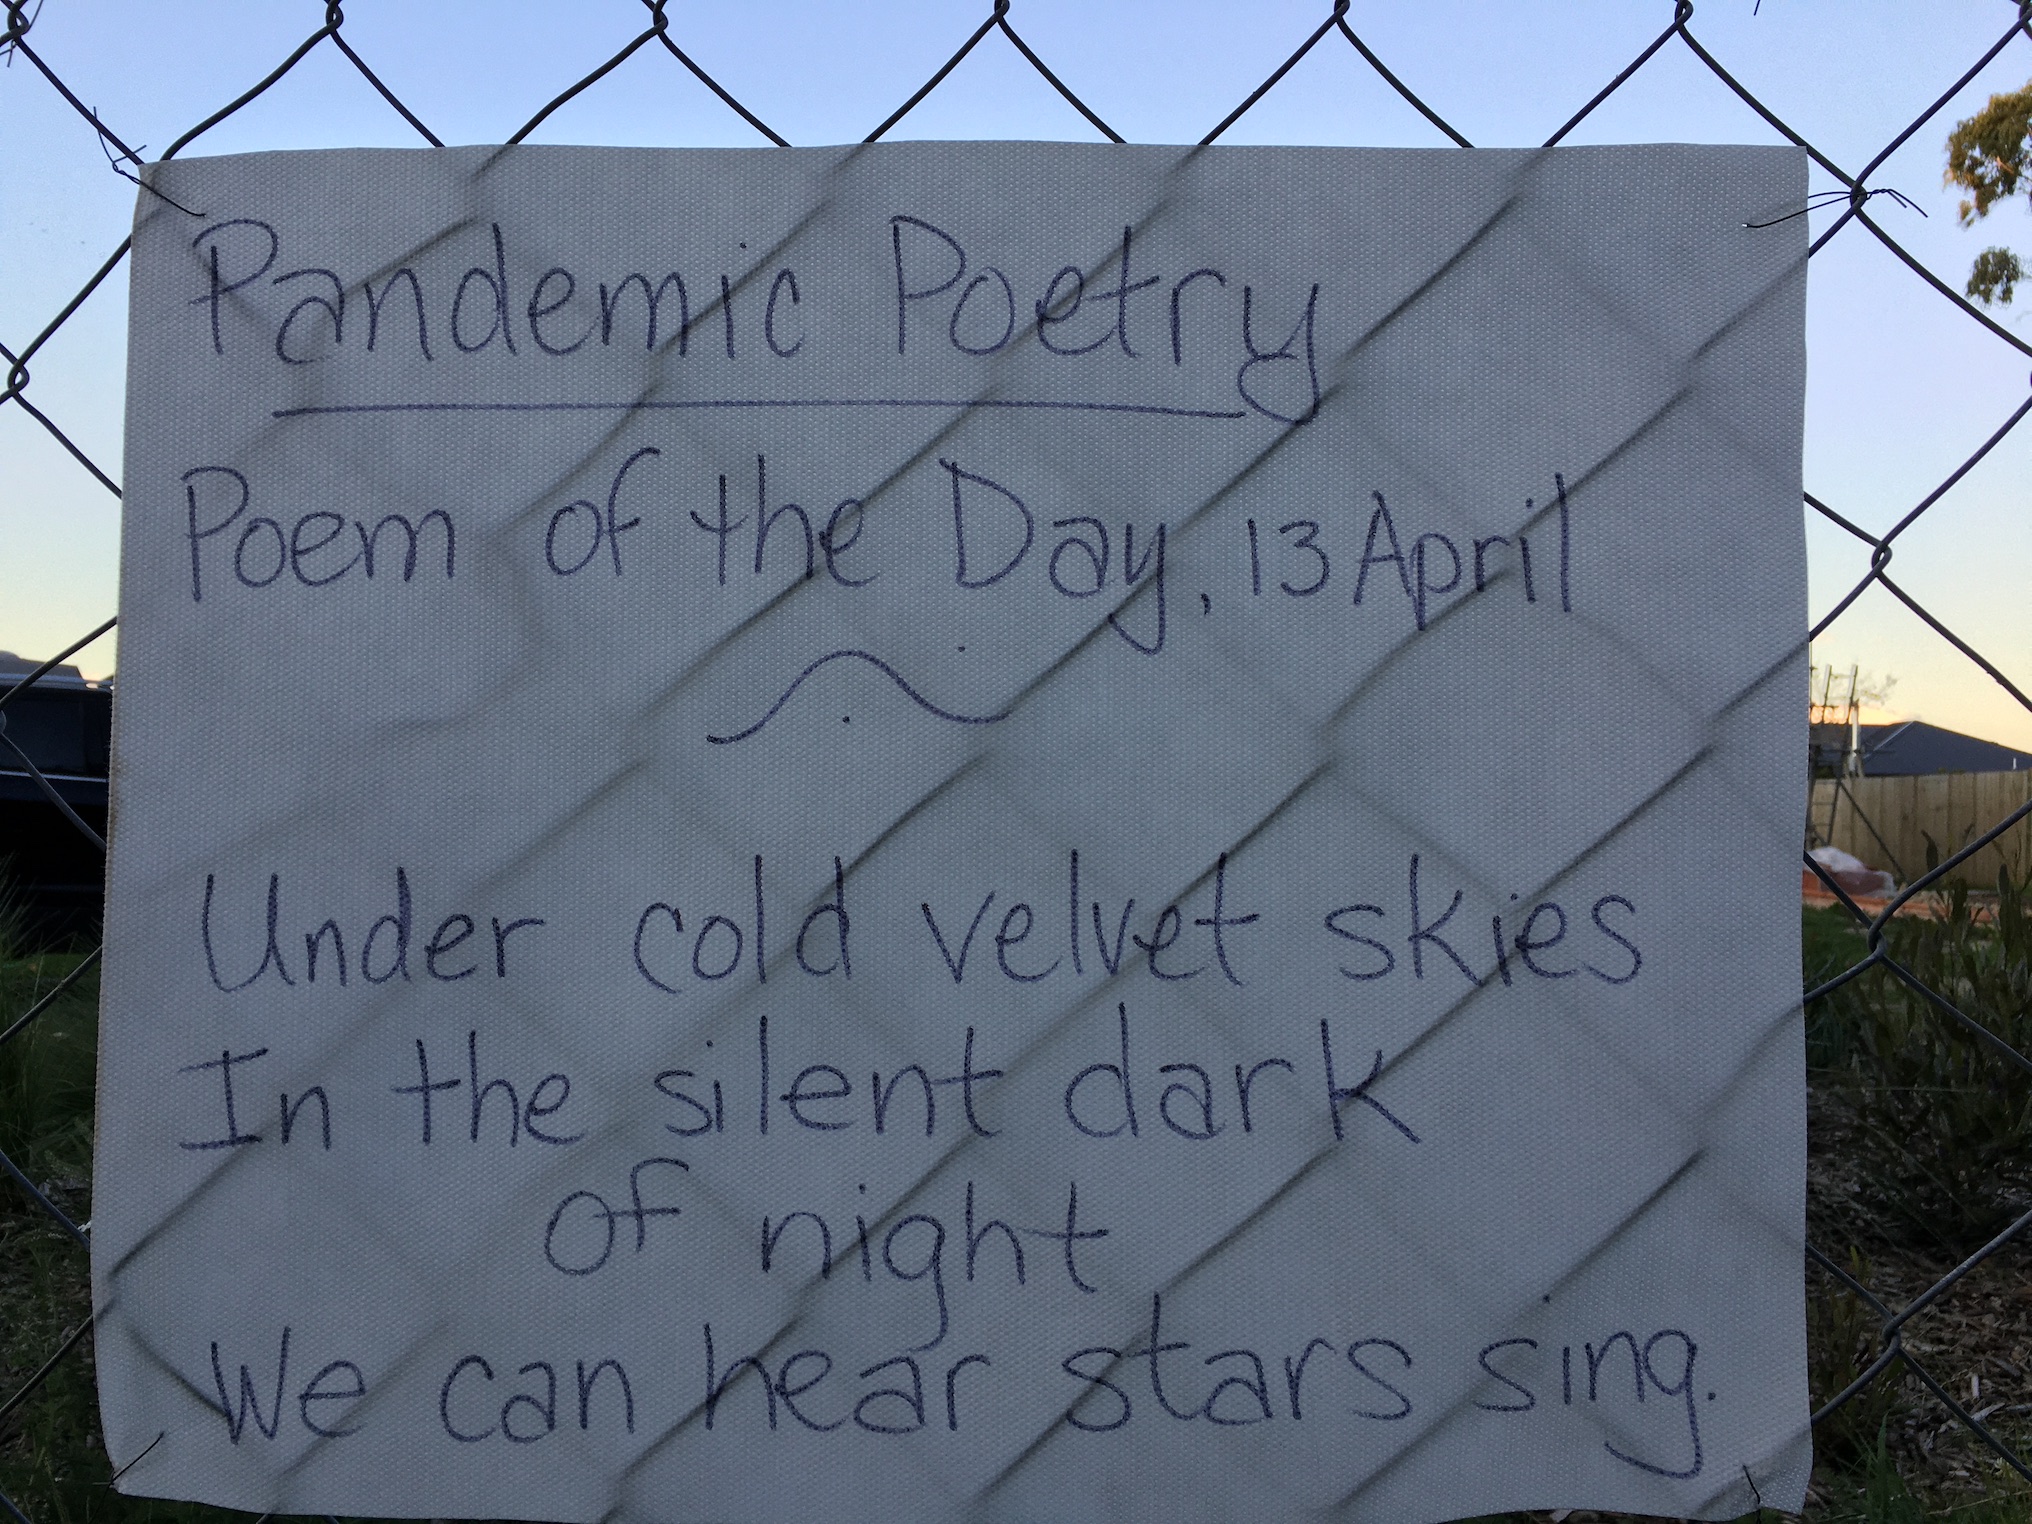 Pandemic Poetry
Poem of the Day, 13 April
Under cold velvet skies
In the silent dark
of night
We can hear stars sing.